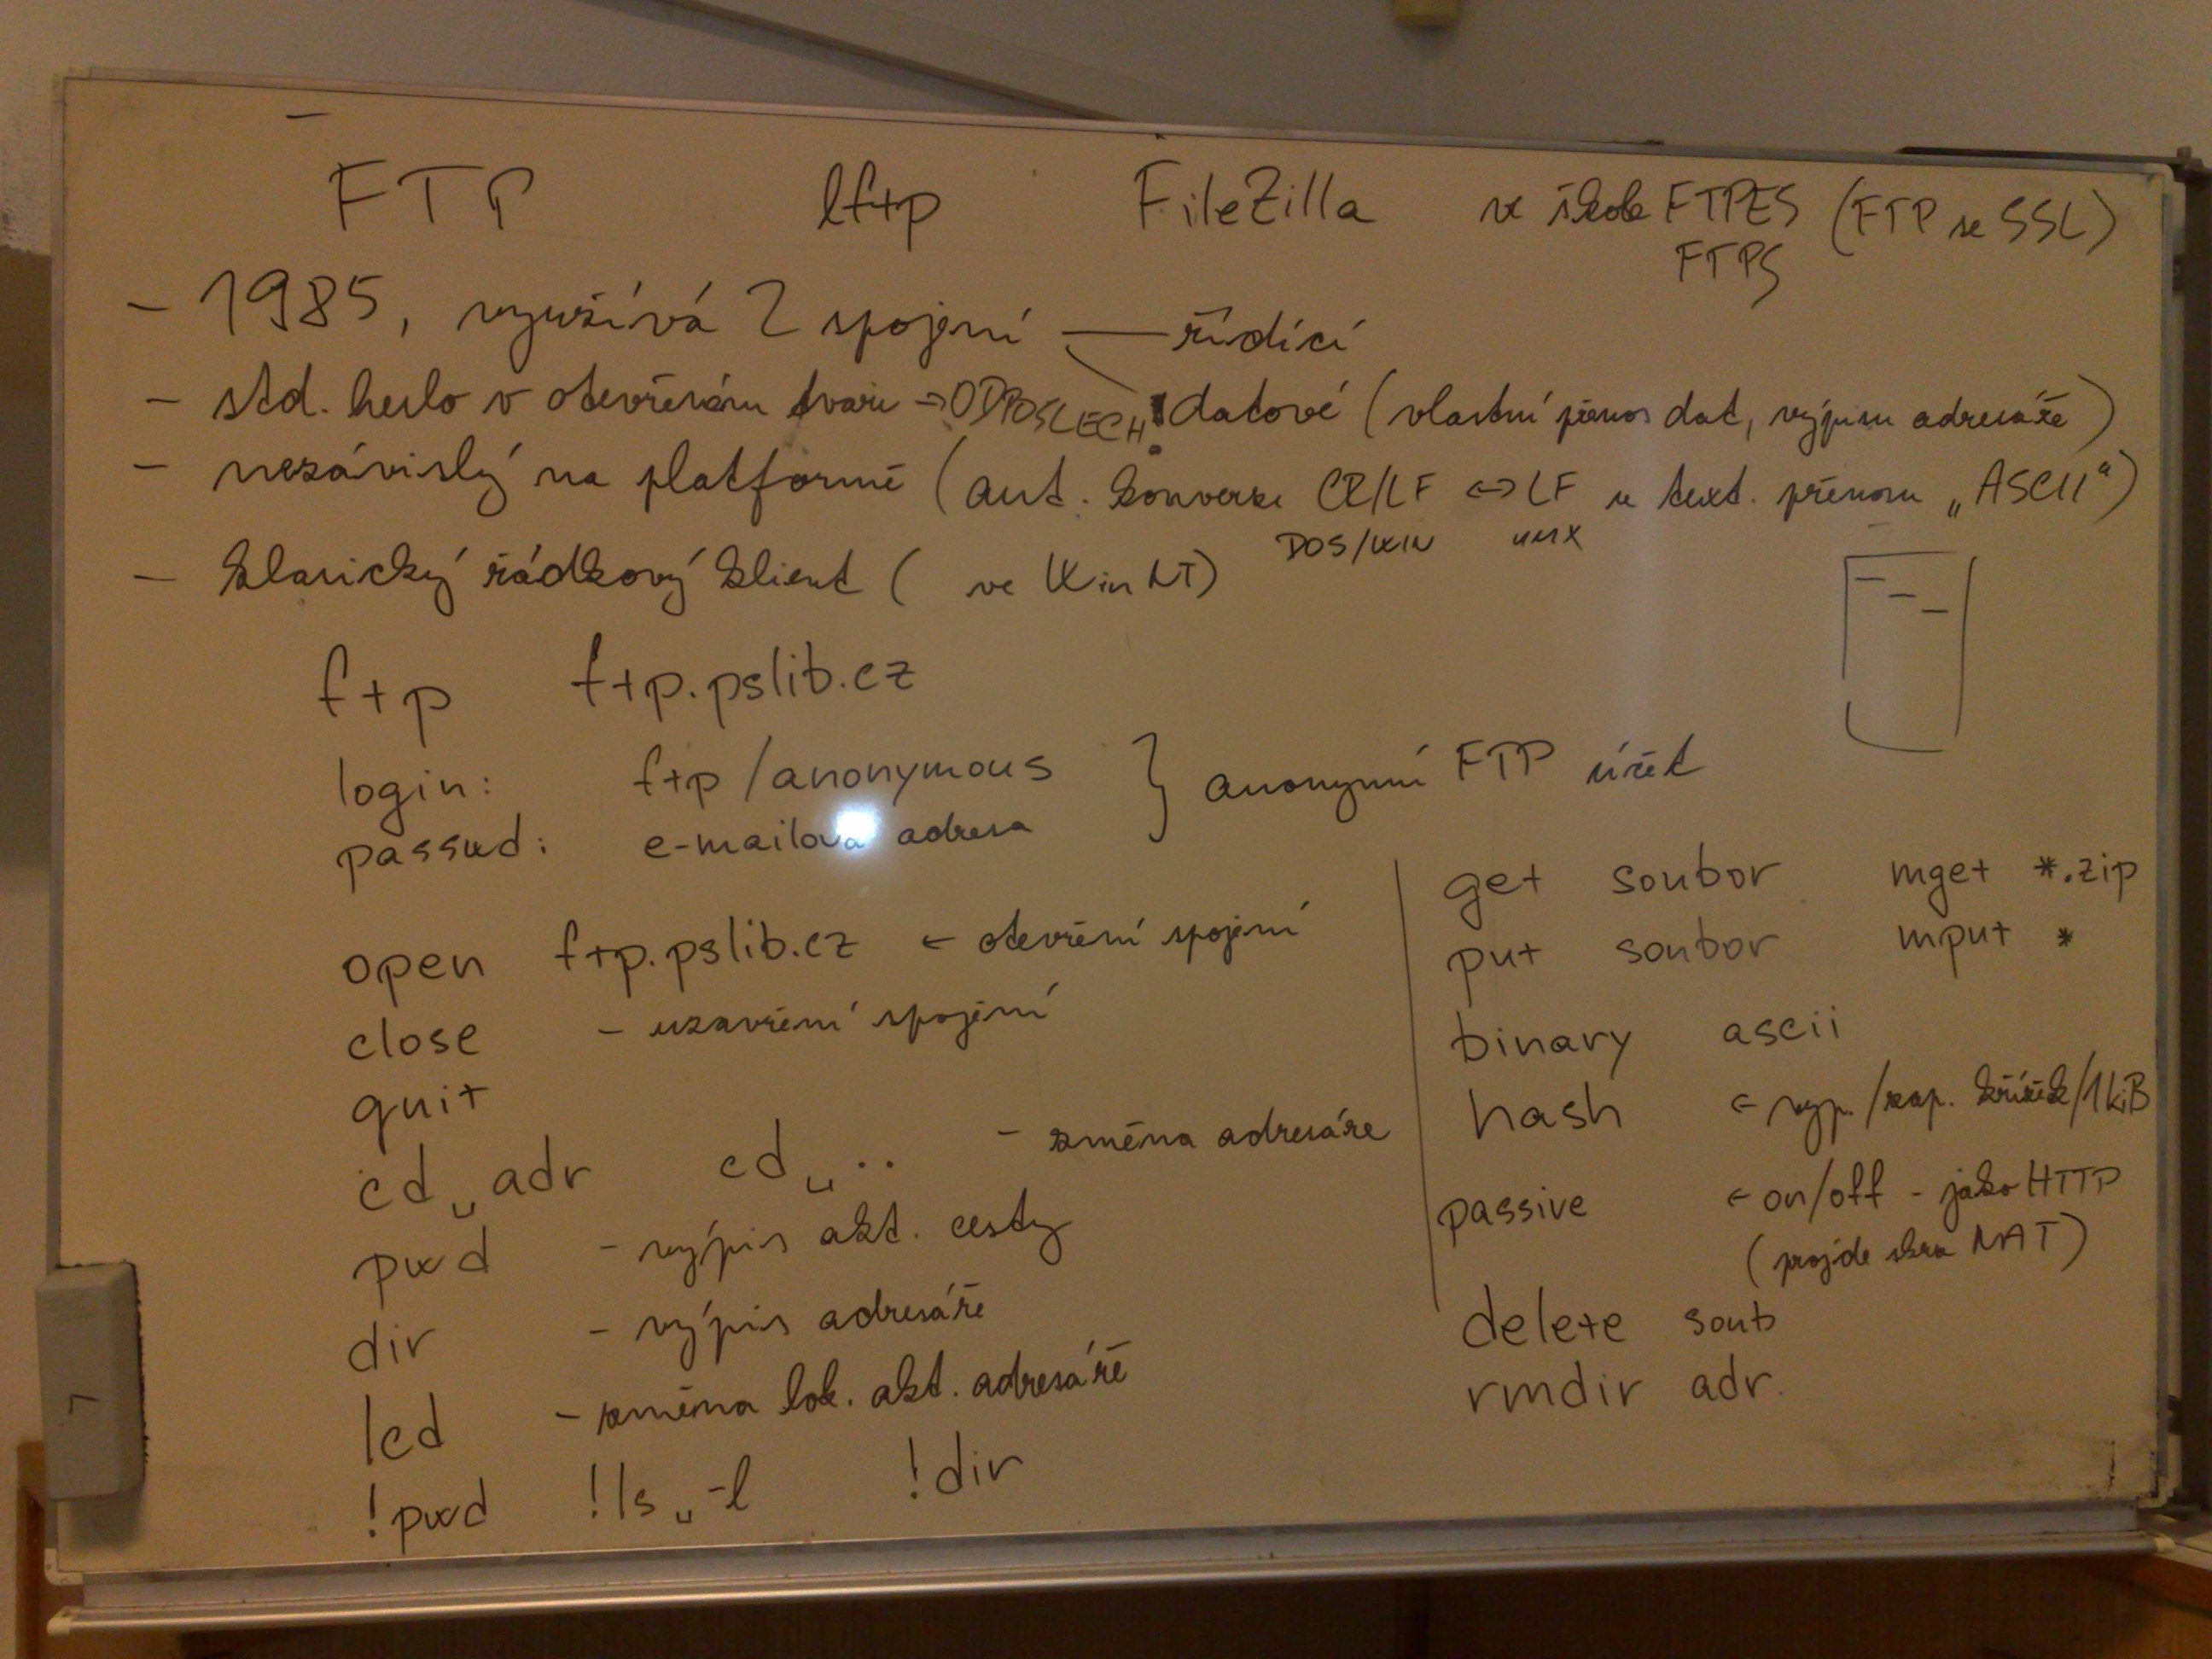 FTP lftp FileZilla ve škole FTPES (FTP se SSL)
FTPS
- 1985, využívá 2 spojení — řídící
- std. heslo v otevřeném tvaru → ODPOSLECH! datové (vlastní přenos dat, výpisu adresáře)
- nezávislý na platformě (aut. konverze CR/LF ↔ LF u text. přenosu „ASCII“)
DOS/WIN UNIX
- klasický řádkový klient ( ve WinNT)
ftp ftp.pslib.cz
login: ftp/anonymous } anonymní FTP účet
passwd: e-mailová adresa
open ftp.pslib.cz ← otevření spojení
close - uzavření spojení
quit
cd␣adr cd␣.. - změna adresáře
pwd - výpis akt. cesty
dir - výpis adresáře
lcd - změna lok. akt. adresáře
!pwd !ls␣-l !dir
get soubor mget *.zip
put soubor mput *
binary ascii
hash ← vyp./zap. křížek/1kiB
passive ← on/off - jako HTTP
(projde skrz NAT)
delete soub
rmdir adr.